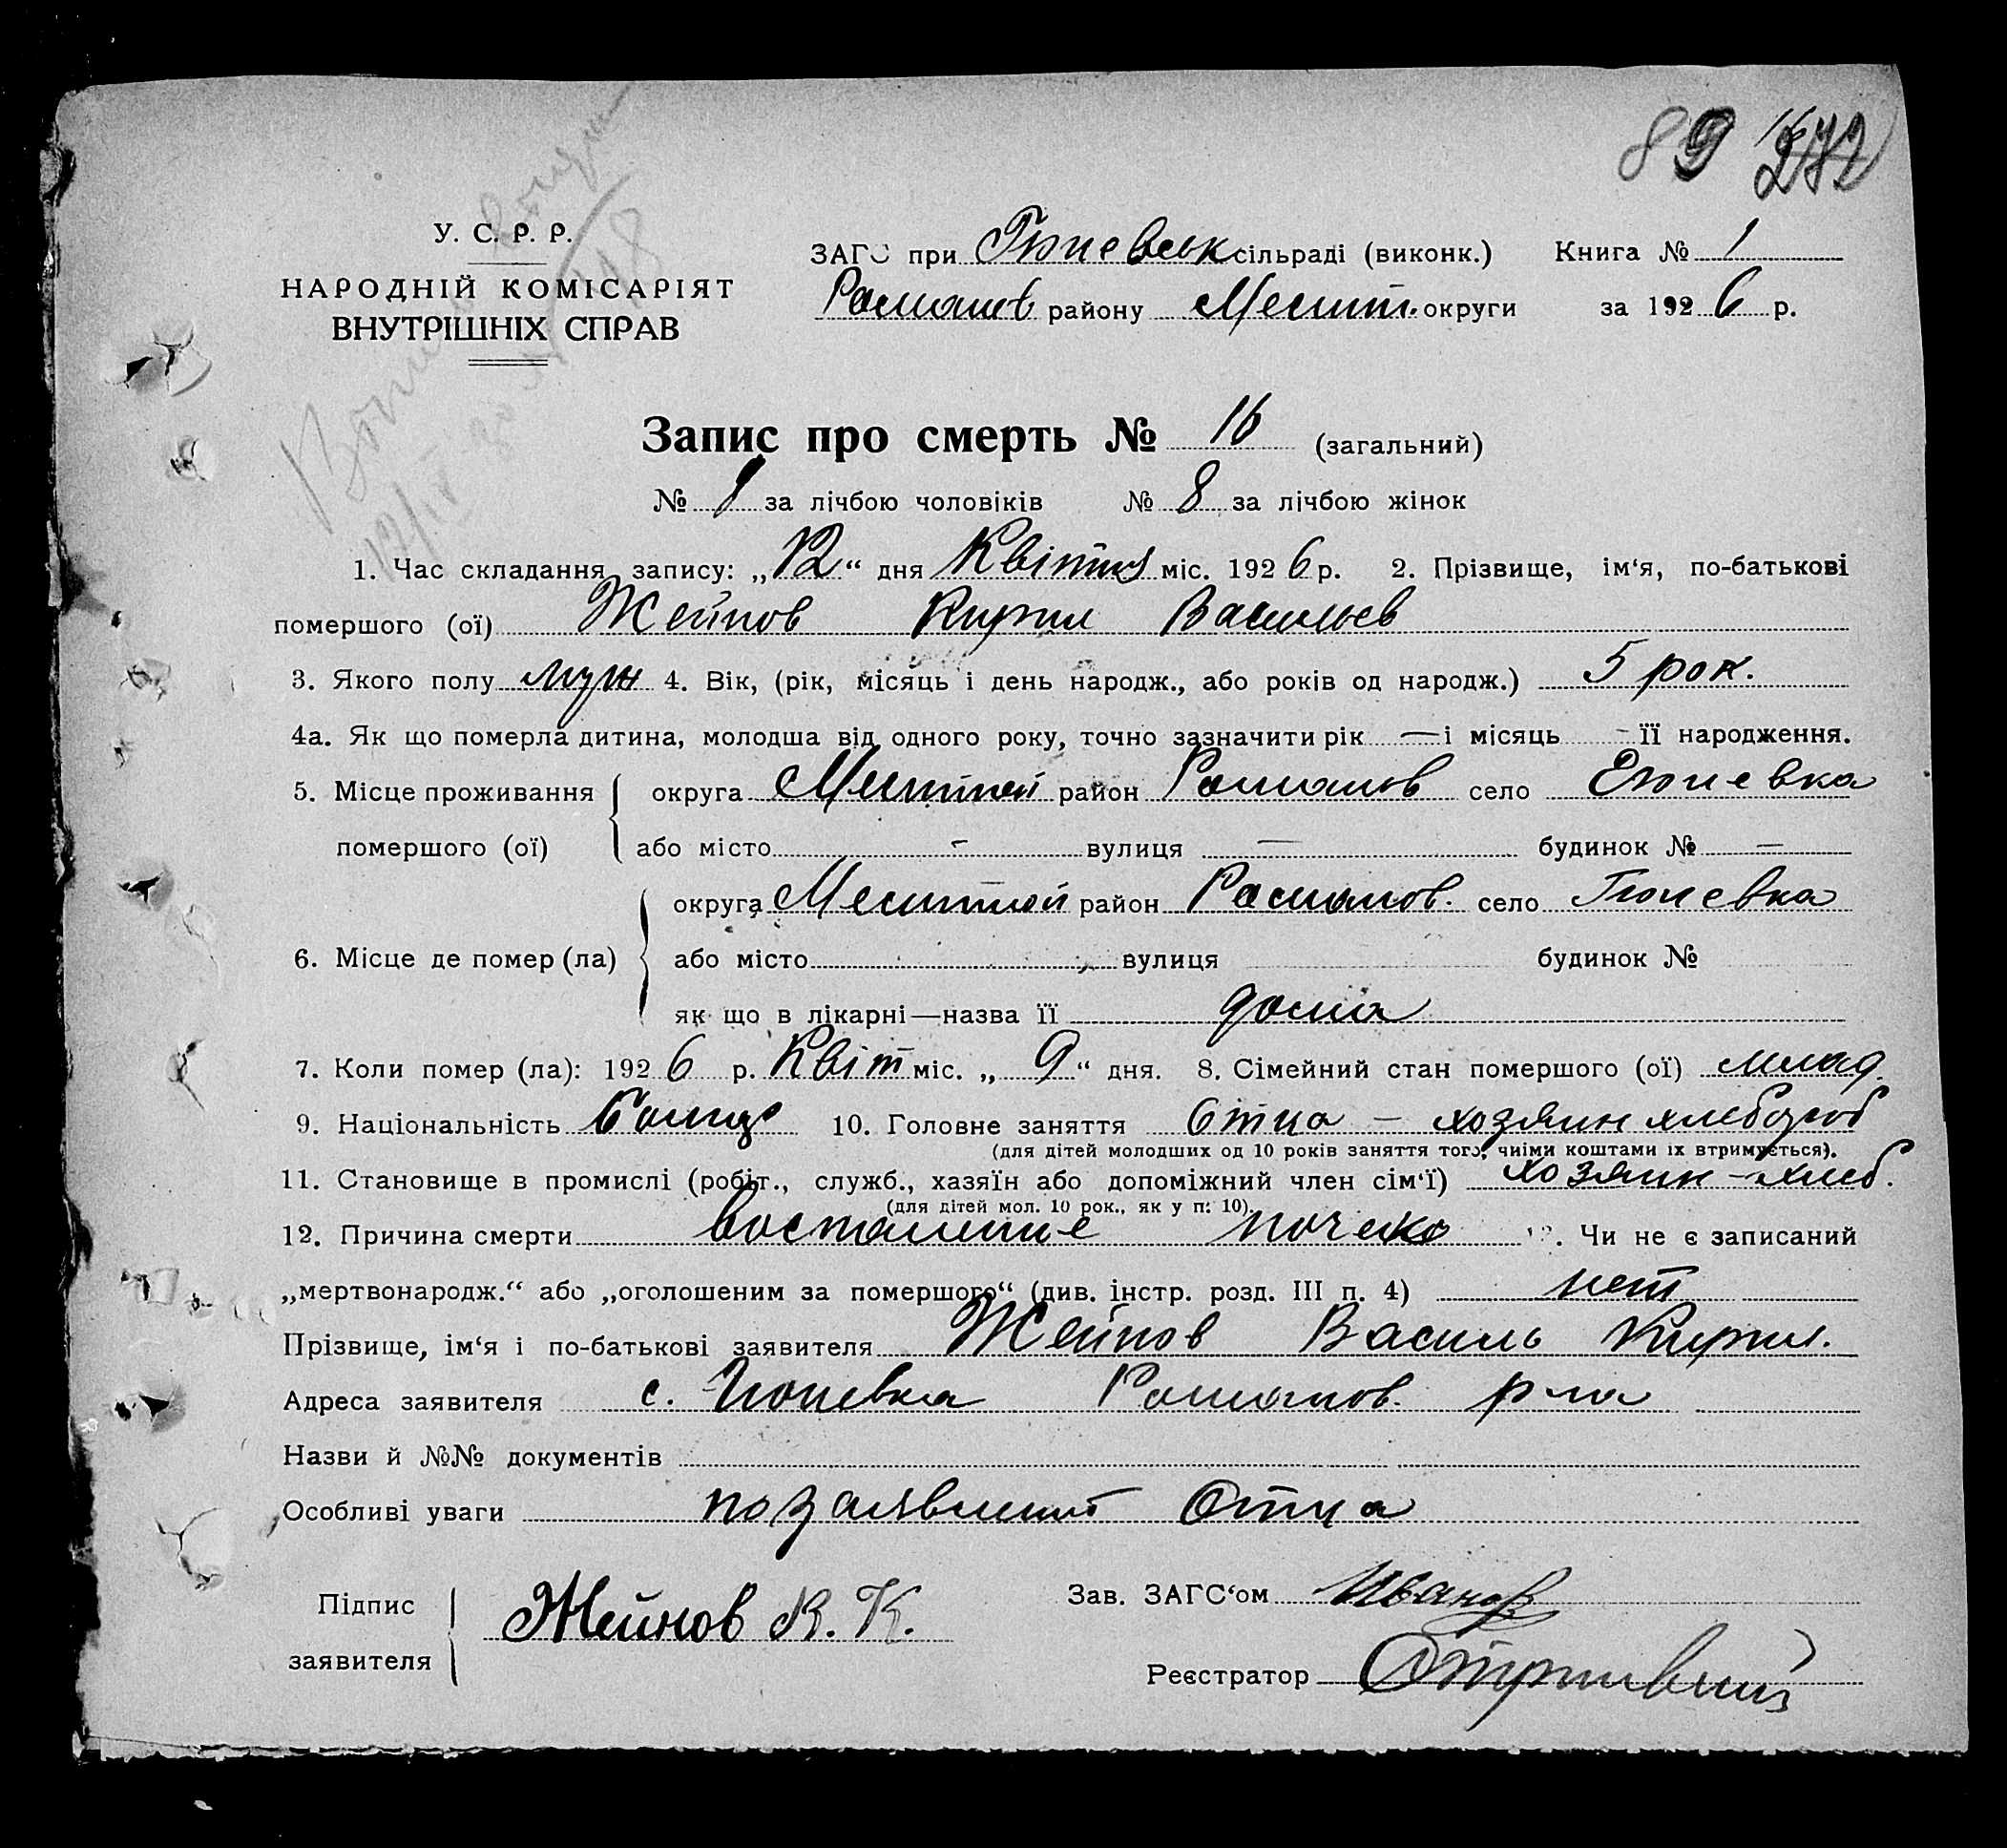 89 272
У. С. Р. Р.
НАРОДНІЙ КОМІСАРІЯТ
ВНУТРІШНІХ СПРАВ
ЗАГС при Гюневськ сільраді (виконк.) Книга № 1
Романов району Меліт. округи за 1926 р.
Запис про смерть № 16 (загальний)
№ 8 за лічбою чоловіків № 8 за лічбою жінок
1. Час складання запису: „12“ дня Квітня міс. 1926 р. 2. Прізвище, ім‘я, по-батькові
помершого (ої) Жейнов Кирил Васильев
3. Якого полу муж 4. Вік, (рік, місяць і день народж., або років од народж.) 5 рок.
4а. Як що померла дитина, молодша від одного року, точно зазначити рік — і місяць - її народження.
5. Місце проживання округа район Романов село Гюневка
помершого (ої) або місто - вулиця — будинок № —
округа район Романов. село Гюневка
6. Місце де помер (ла) або місто вулиця будинок №
як що в лікарні—назва її дома
7. Коли помер (ла): 1926 р. Квіт міс. „9“ дня. 8. Сімейний стан помершого (ої) млад.
9. Національність 10. Головне заняття Отца — хозяин хлебороб
(для дітей молодших од 10 років заняття того, чиіми коштами їх втримується).
11. Становище в промислі (робіт., служб., хазяїн або допоміжний член сім‘ї) хозяин - хлеб.
(для дітей мол. 10 рок., як у п: 10).
12. Причина смерти воспаление почек 13. Чи не є записаний
„мертвонародж.“ або „оголошеним за помершого“ (див. інстр. розд. III п. 4) нет
Прізвище, ім‘я і по-батькові заявителя Жейнов Василь Кирил.
Адреса заявителя с. Гюневка Романов. р-на
Назви й №№ документів
Особливі уваги по заявлению Отца
Підпис
заявителя
Жейнов В. К.
Зав. ЗАГС‘ом Иванов
Реєстратор